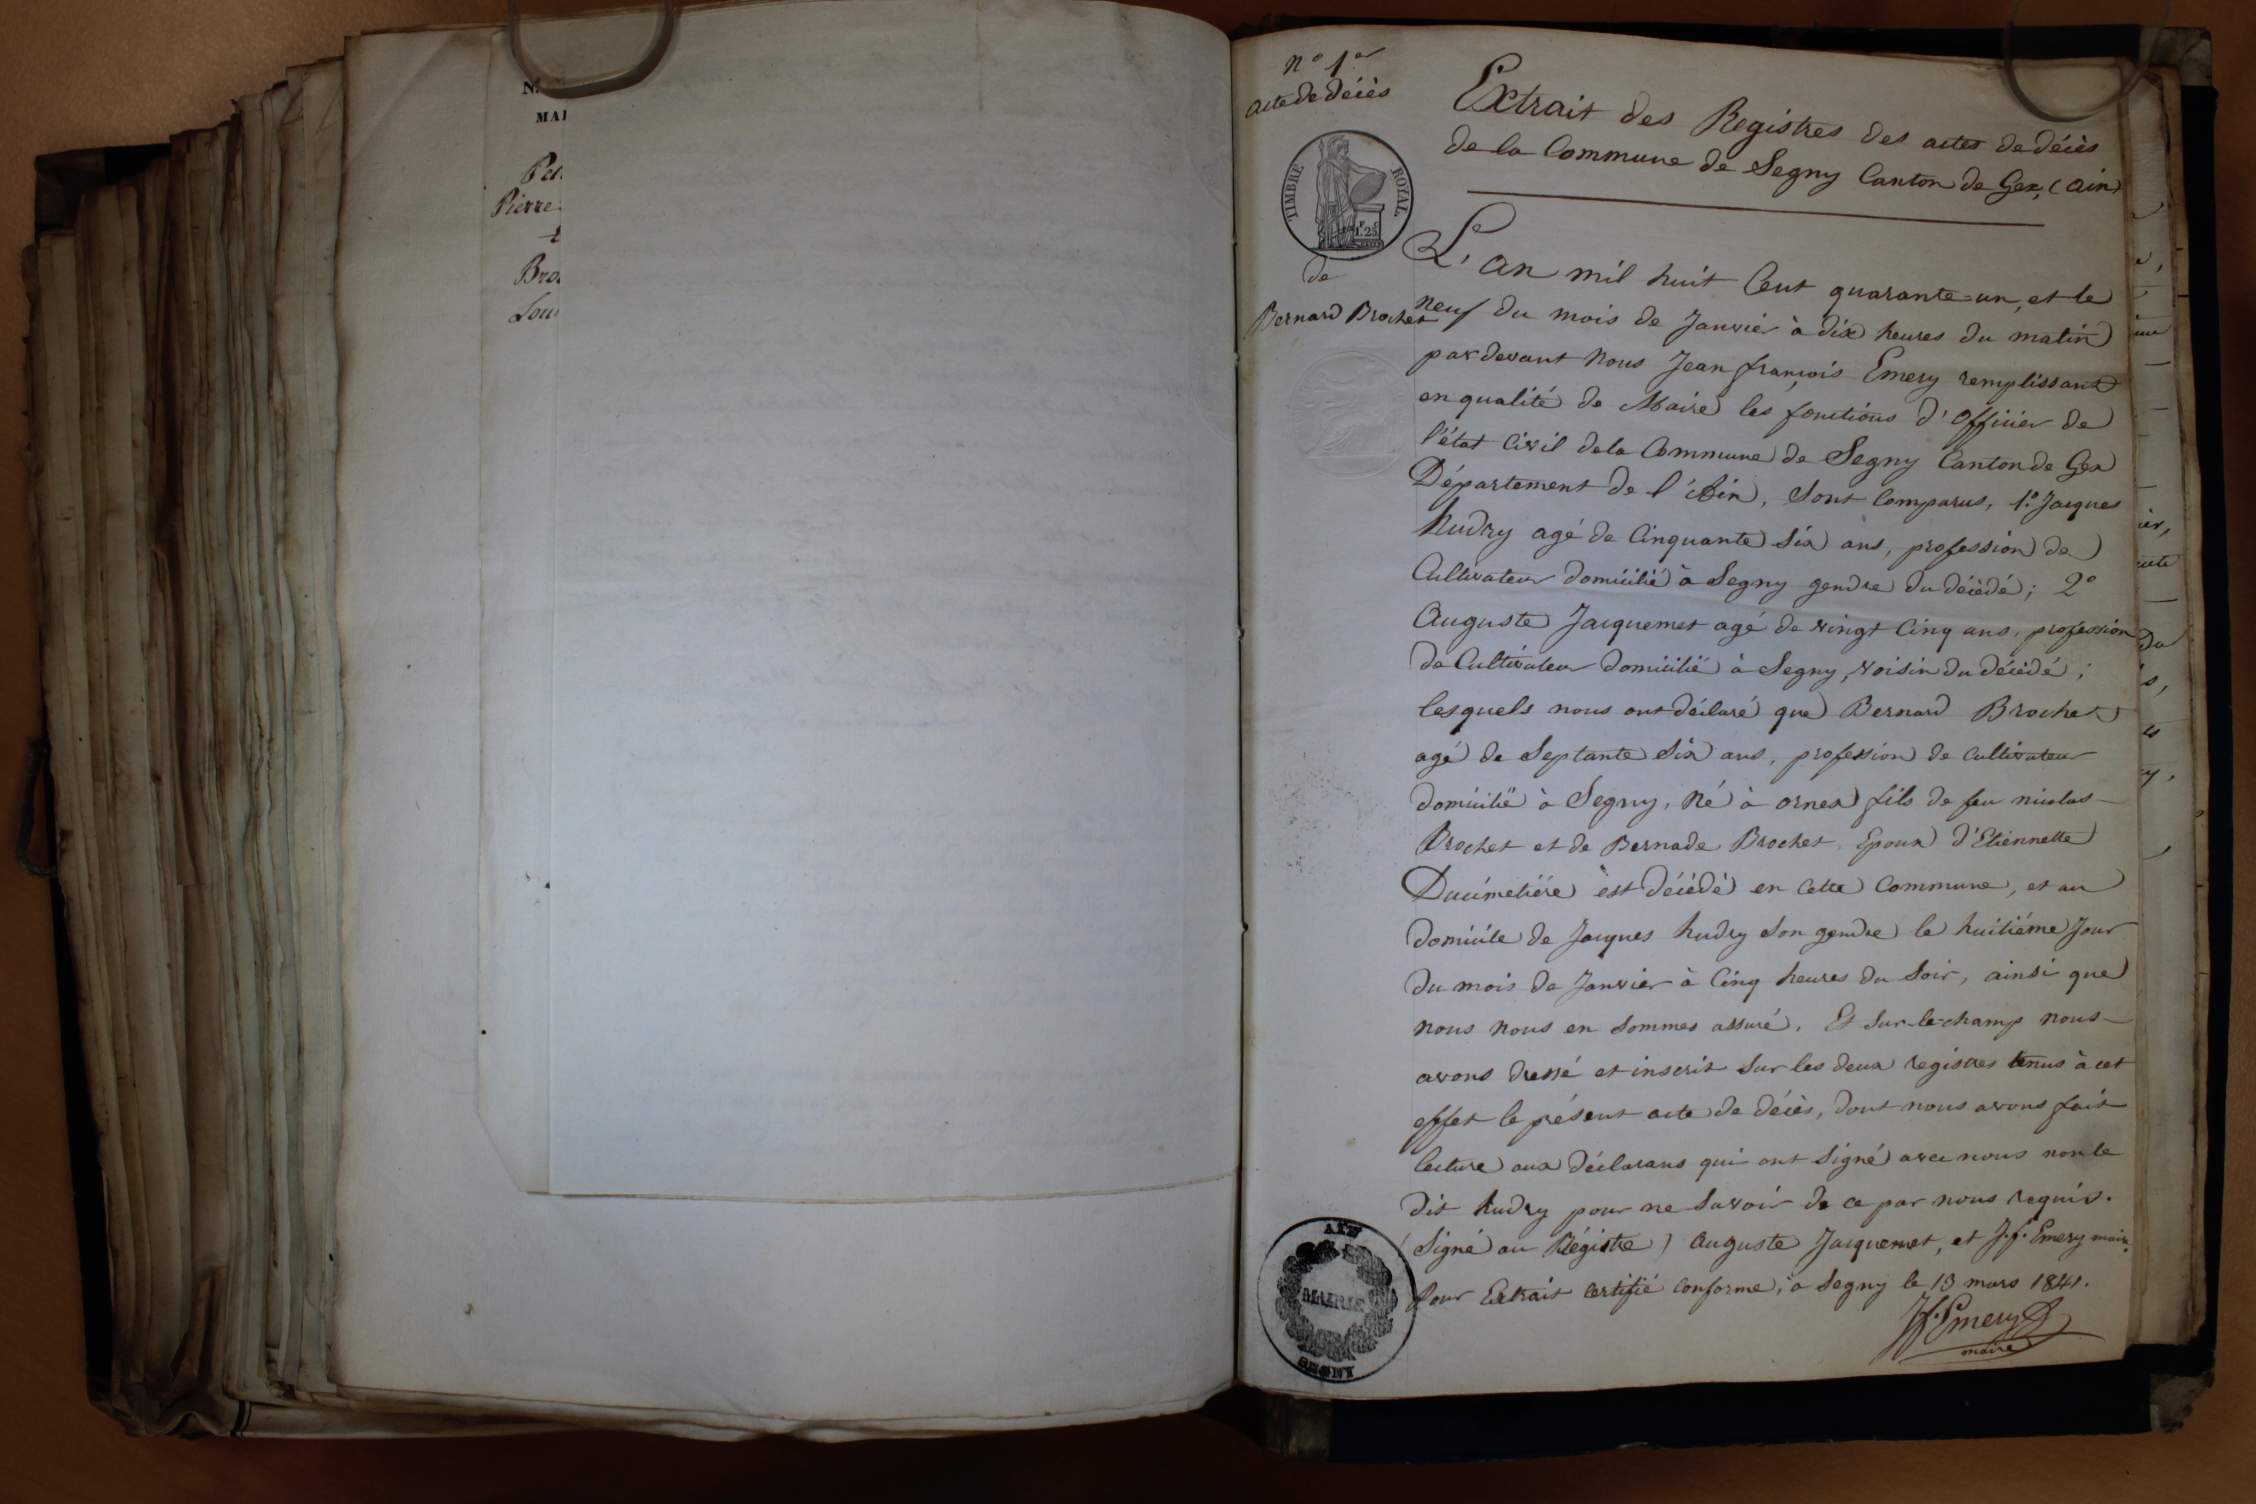 N.
MAI
Pierre
Bro
Lou
N° 1er
acte de décès
TIMBRE ROYAL
1F. 25C
de
Bernard Brochet
Extrait des Registres des actes de décès
de la Commune de Segny Canton de Gex, (ain)
L'an mil huit Cent quarante-un, et le
neuf du mois de Janvier à dix heures du matin
pardevant Nous Jean françois Emery remplissant
en qualité de Maire les fonctions d'officier de
l'état Civil de la Commune de Segny Canton de Gex
Département de l'Ain, Sont Comparus, 1.° Jacques
hudry agé de Cinquante Six ans, profession de
Cultivateur domicilié à Segny gendre du décédé; 2°
Auguste Jacquemet agé de vingt Cinq ans, profession
de Cultivateur domicilié à Segny, voisin du décédé;
lesquels nous ont déclaré que Bernard Brochet
agé de Septante Six ans, profession de Cultivateur
domicilié à Segny, Né à ornex fils de feu nicolas
Brochet et de Bernade Brochet, Epoux d'Etiennette
Ducimetière est décédé en Cette Commune, et au
domicile de Jacques hudry Son gendre le huitiéme Jour
du mois de Janvier à Cinq heures du Soir, ainsi que
nous nous en Sommes assuré. Et Sur-le-champ nous
avons dressé et inscrit Sur les deux registres tenus à cet
effet le présent acte de décès, dont nous avons fait
lecture aux déclarans qui ont Signé avec nous non le
dit hudry pour ne Savoir de ce par nous requis.
(Signé au Régistre) Auguste Jacquemet, et J.f. Emery maire.
Pour Extrait Certifié Conforme, à Segny le 13 mars 1841.
Jf. Emery
maire
AIN
MAIRIE
SEGNY